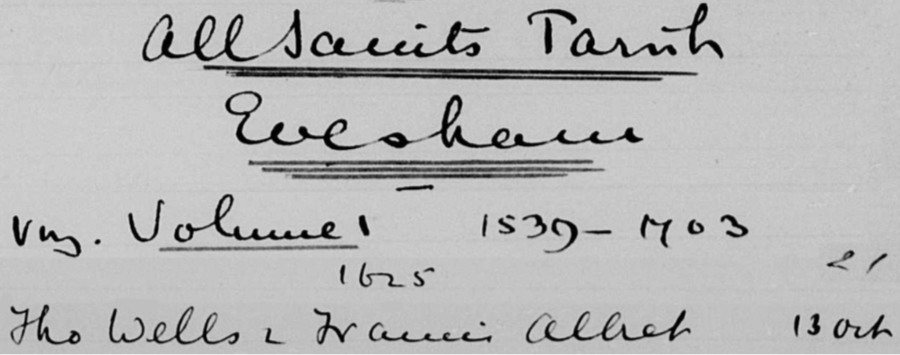 All Saints Parish
Evesham
Volume 1 1539 - 1703
1625
21
Tho Wells & Francis 13 Oct